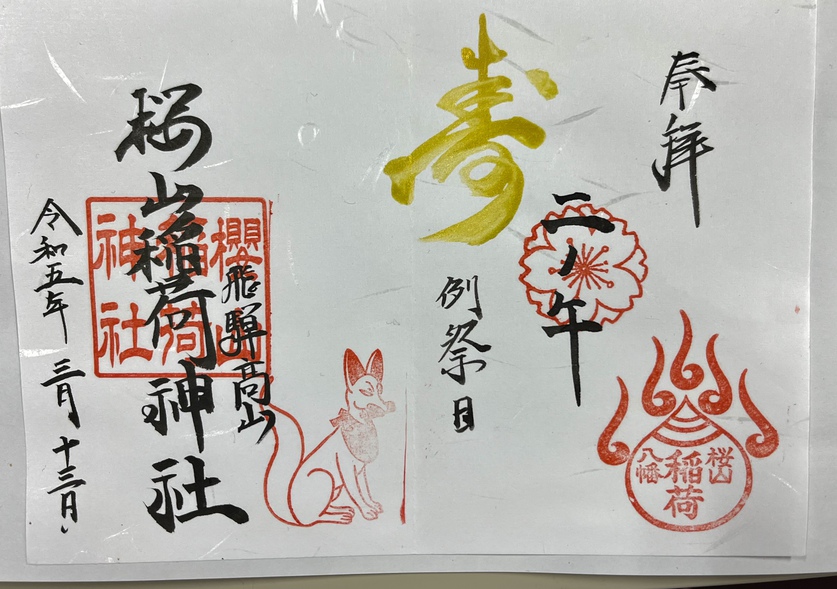 奉拝
二ノ午
寿
例祭日
桜山
八幡
稲荷
飛騨高山
桜山稲荷神社
櫻山
稲荷
神社
令和五年 三月 十三日